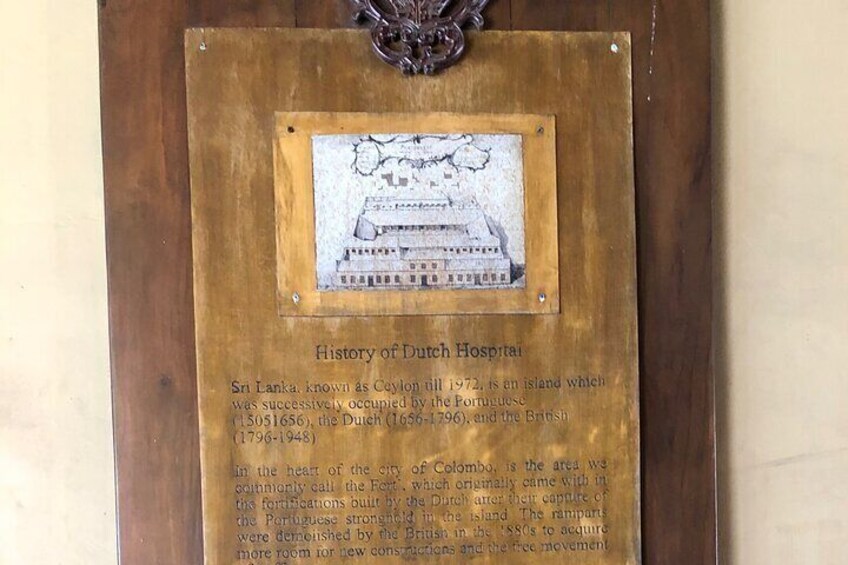 History of Dutch Hospital
Sri Lanka, known as Ceylon till 1972, is an island which
was successively occupied by the Portuguese
(15051656), the Dutch (1656-1796), and the British
(1796-1948)
In the heart of the city of Colombo, is the area we
commonly call 'the Fort', which originally came with in
the fortifications built by the Dutch after their capture of
the Portuguese stronghold in the island. The ramparts
were demolished by the British in the 1880s to acquire
more room for new constructions and the free movement